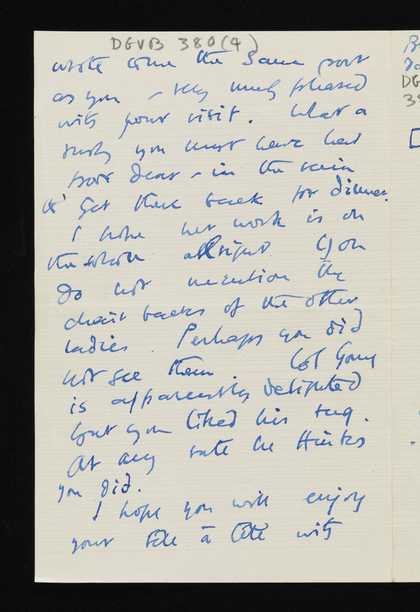 DGVB 380(4)
wrote [by] the same post
as you - very much pleased
with your visit. What a
rush you must have had
poor dear - in the rain
to get there back for dinner.
I hope her work is on
the whole allright. You
do not mention the
chair backs of the other
ladies. Perhaps you did
not see them. Col Grant
is apparently delighted
that you liked his rug.
At any rate he thinks
you did.
I hope you will enjoy
your tête à tête with
DG